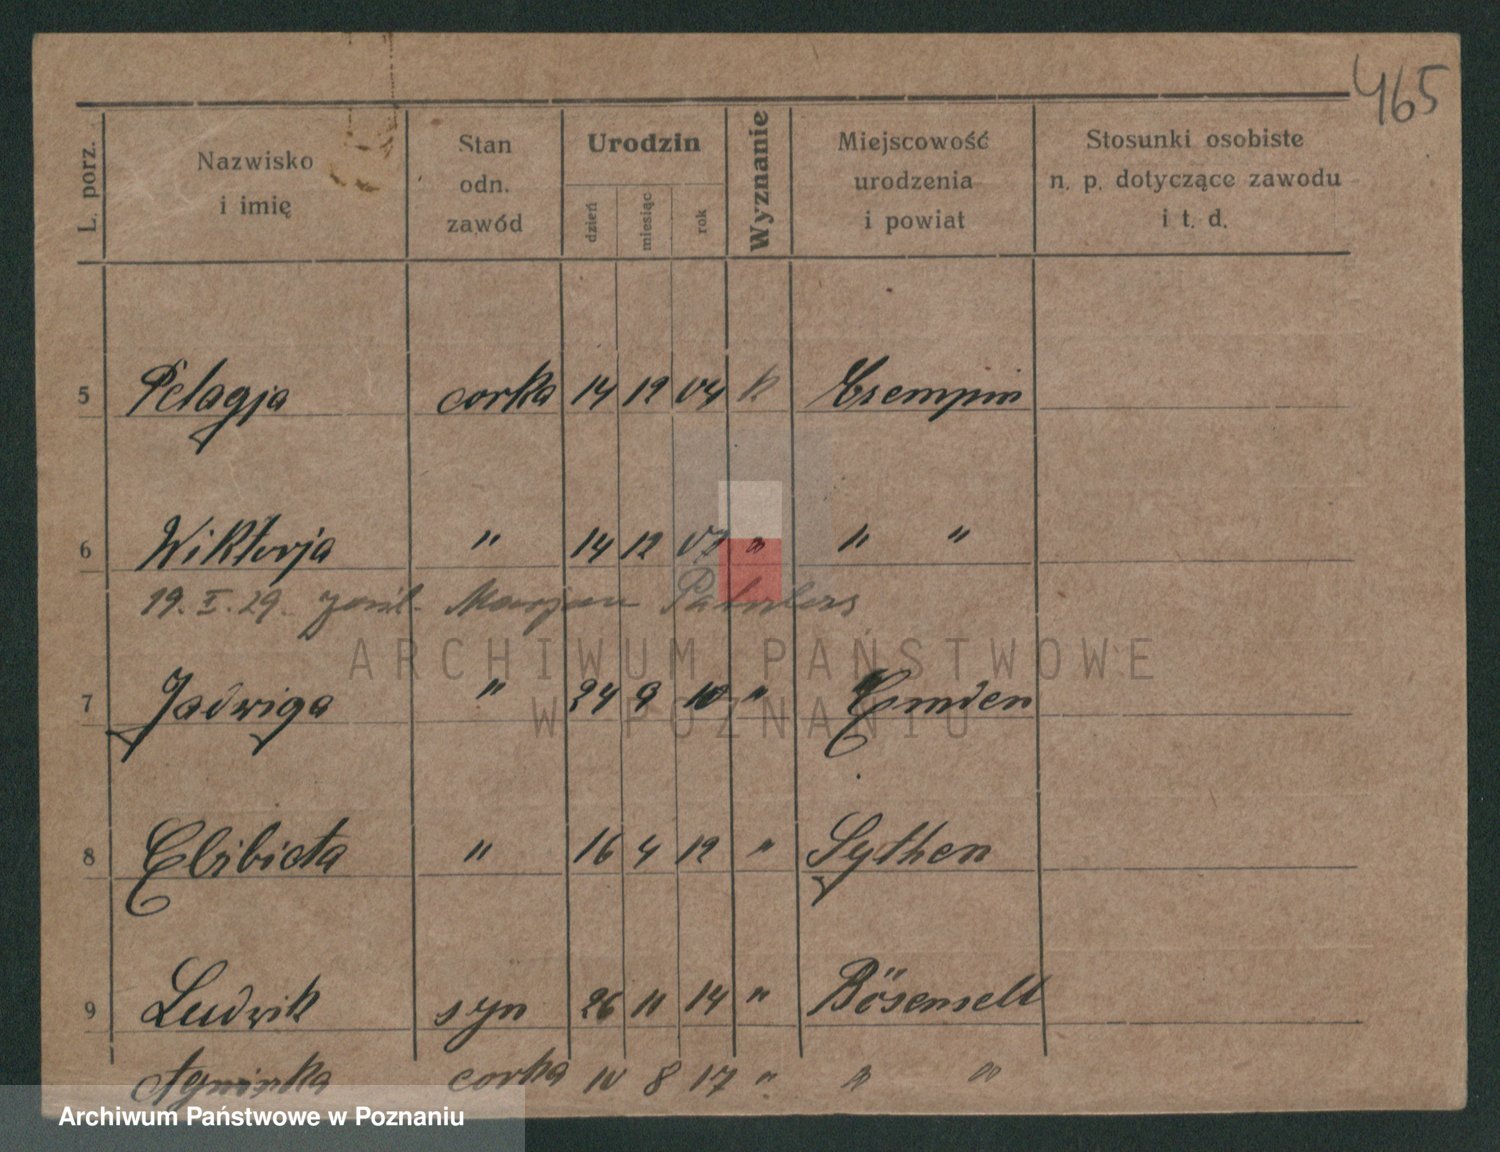 465
L. porz.
Nazwisko i imię
Stan odn. zawód
Urodzin
dzień miesiąc rok
Wyznanie
Miejscowość urodzenia i powiat
Stosunki osobiste n. p. dotyczące zawodu i t. d.
5 Pelagja corka 14 12 04 k Czempin
6 Wiktorja " 14 12 07 " " "
19. I. 29. Marjan
7 Jadwiga " 24 9 10 " Emden
8 Elzbieta " 16 4 12 " Sythen
9 Ludwik syn 26 11 14 " Bösensell
Agnieszka corka 10 8 17 " " "
ARCHIWUM PAŃSTWOWE
W POZNANIU
Archiwum Państwowe w Poznaniu